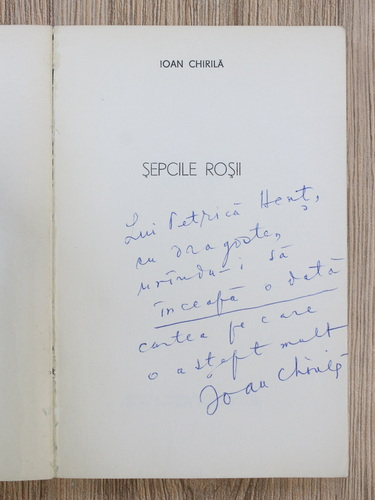 IOAN CHIRILĂ
ȘEPCILE ROȘII
Lui Petrică Henț,
cu dragoste,
urîndu-i să
înceapă o dată
cartea pe care
o aștept mult
Ioan Chirilă